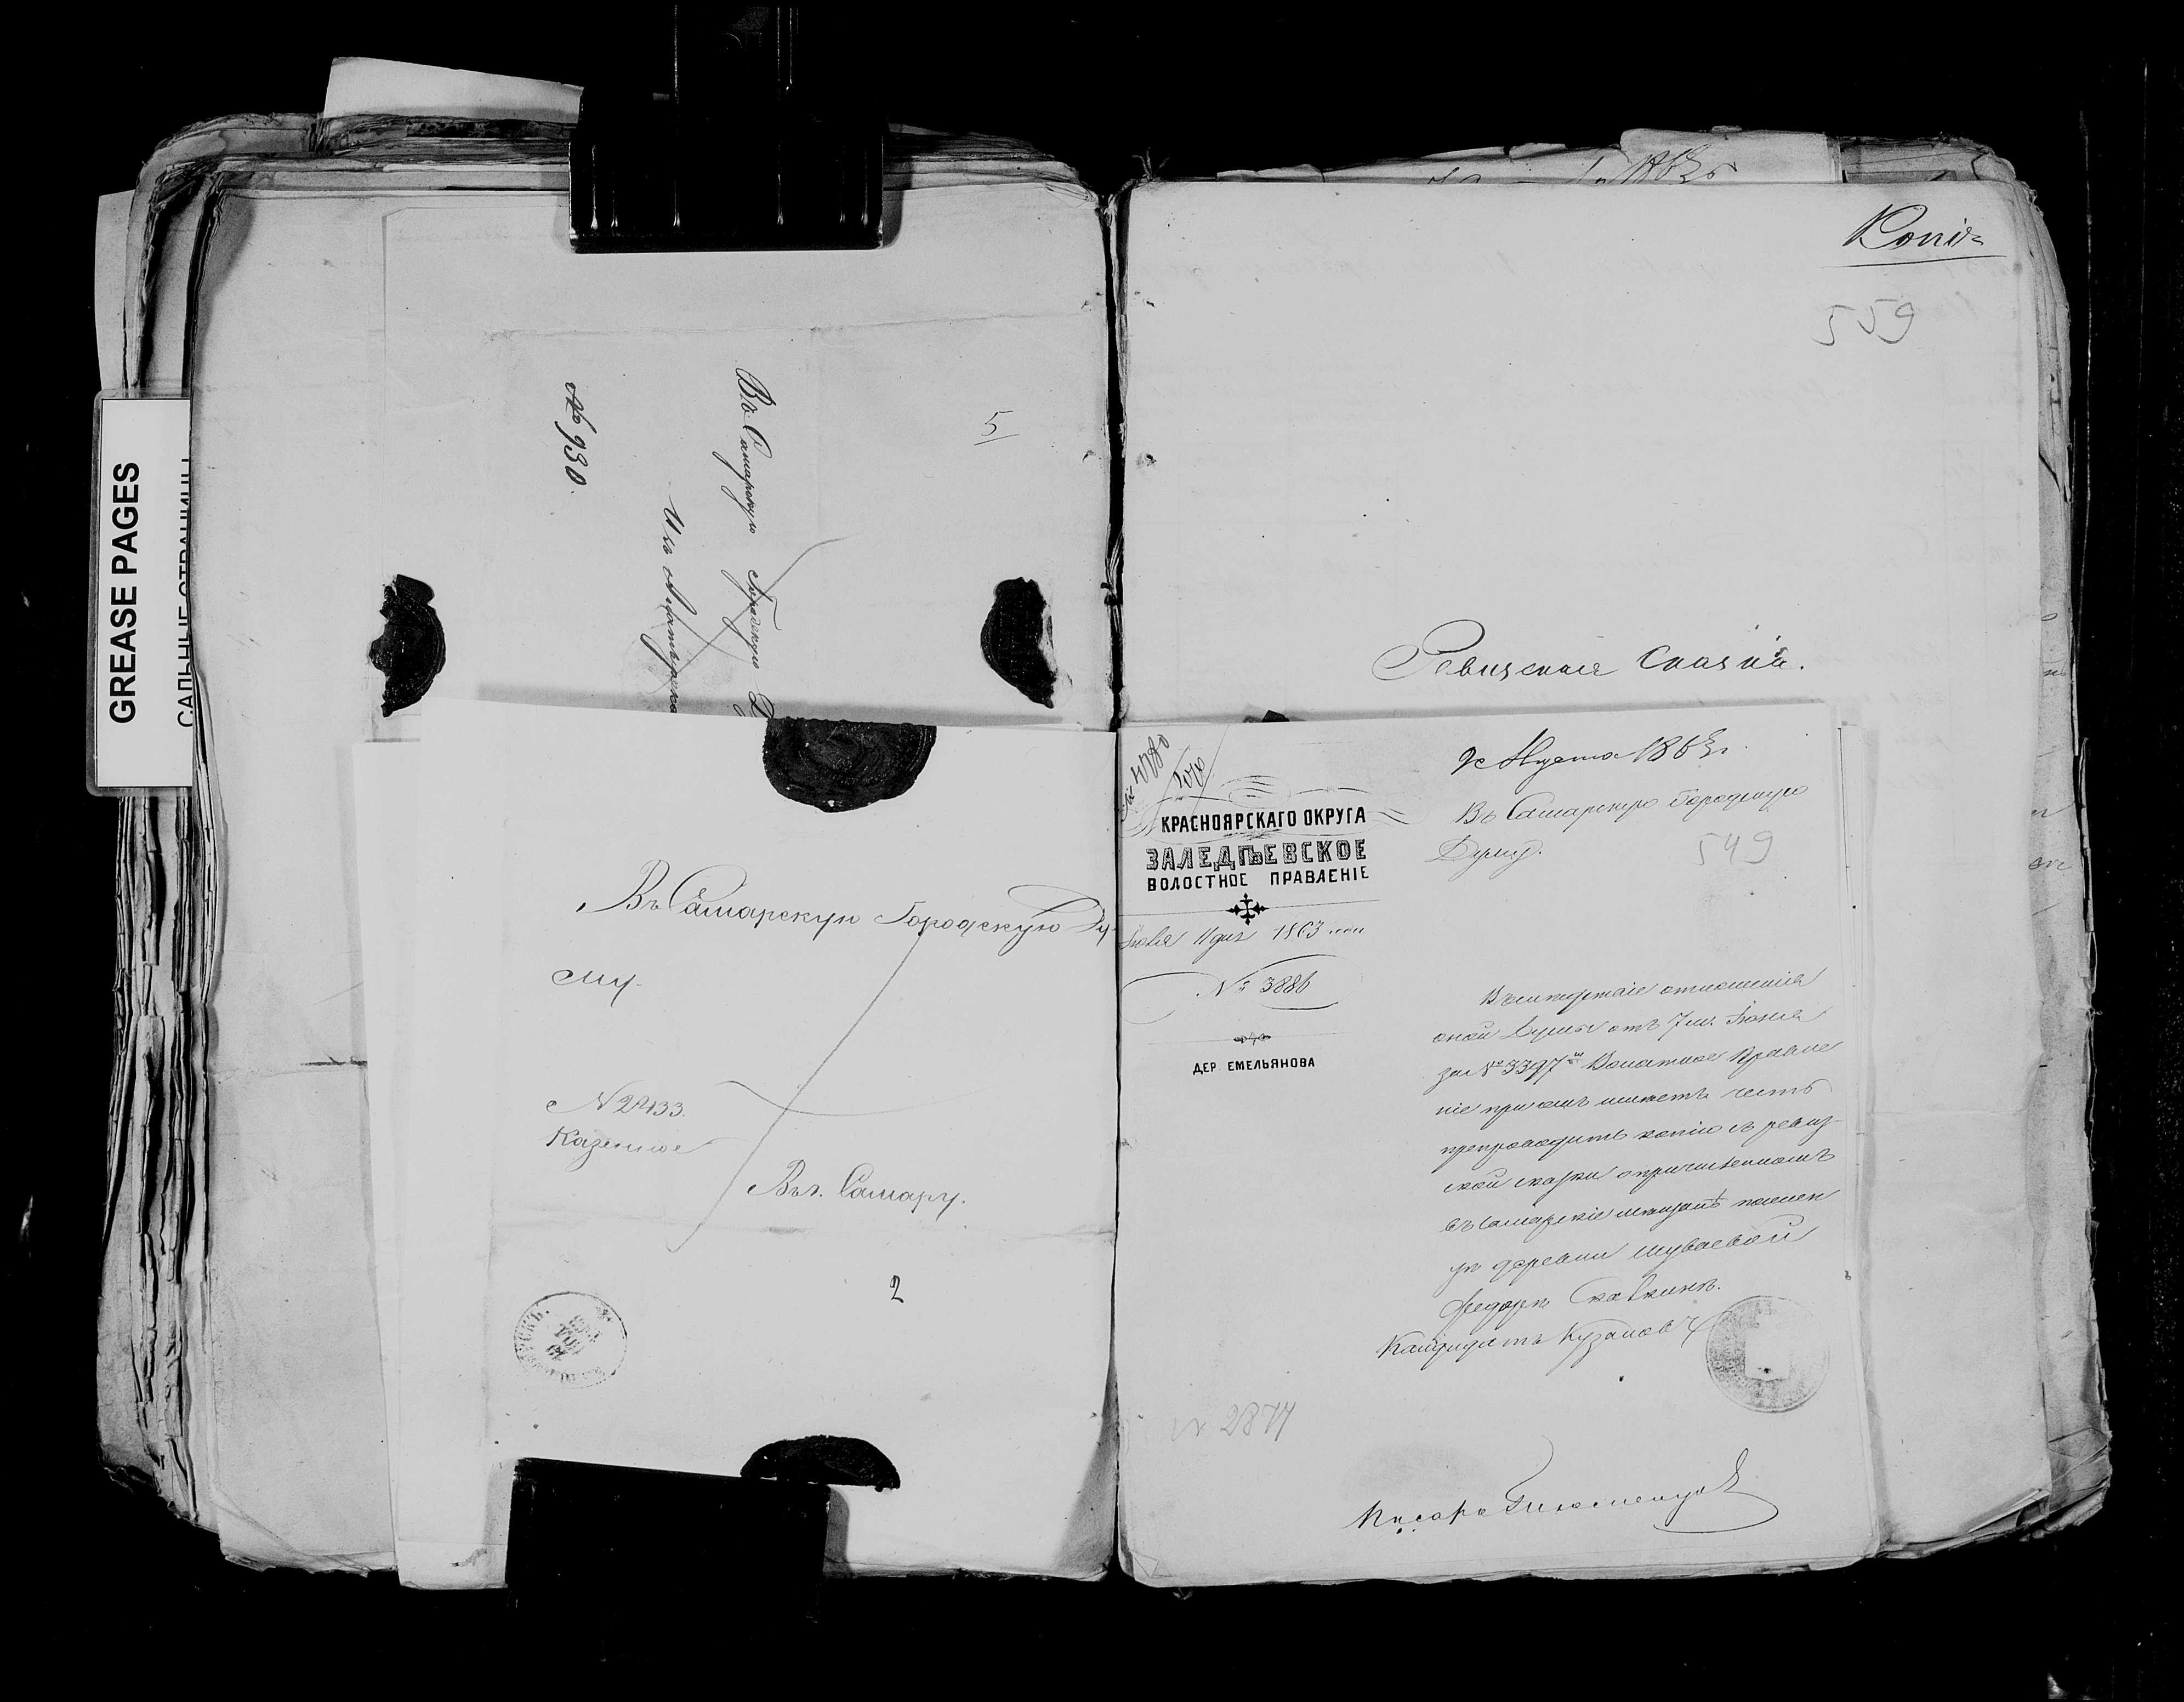 GREASE PAGES
САЛЬНЫЕ СТРАНИЦЫ
№ 930.
Въ Самарскую Городскую Д
Изъ
5
Въ Самарскую Городскую Ду-
му.
№ 2433.
Казенное
Въ г. Самару.
2
Копія
559
Ревизская Сказка.
КРАСНОЯРСКАГО ОКРУГА
ЗАЛЕДѢЕВСКОЕ
ВОЛОСТНОЕ ПРАВЛЕНІЕ
Іюля 11 дня 1863 года
№ 3886
ДЕР. ЕМЕЛЬЯНОВА
№ 2874
9 Августа 1863 г.
Въ Самарскую Городскую
Думу.
549
отношенія
оной Думы отъ 7 м. Іюня
за № 3397 Волостное Правле
ніе при семъ имѣетъ честь
препроводить копію съ ревиз-
ской сказки о причисленномъ
въ Самарскіе мещанѣ поселен
цѣ деревни Шуваевой
Федорѣ
Кандидатъ Кузьмовъ
Писарь